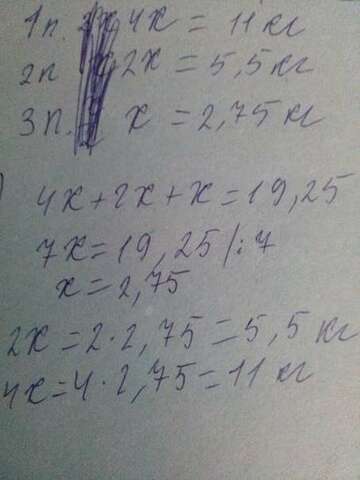 1п. 4x = 11 кг
2п 2x = 5,5 кг
3п. x = 2,75 кг
) 4x+2x+x=19,25
7x=19,25 /:7
x=2,75
2x=2·2,75=5,5 кг
4x=4·2,75=11 кг